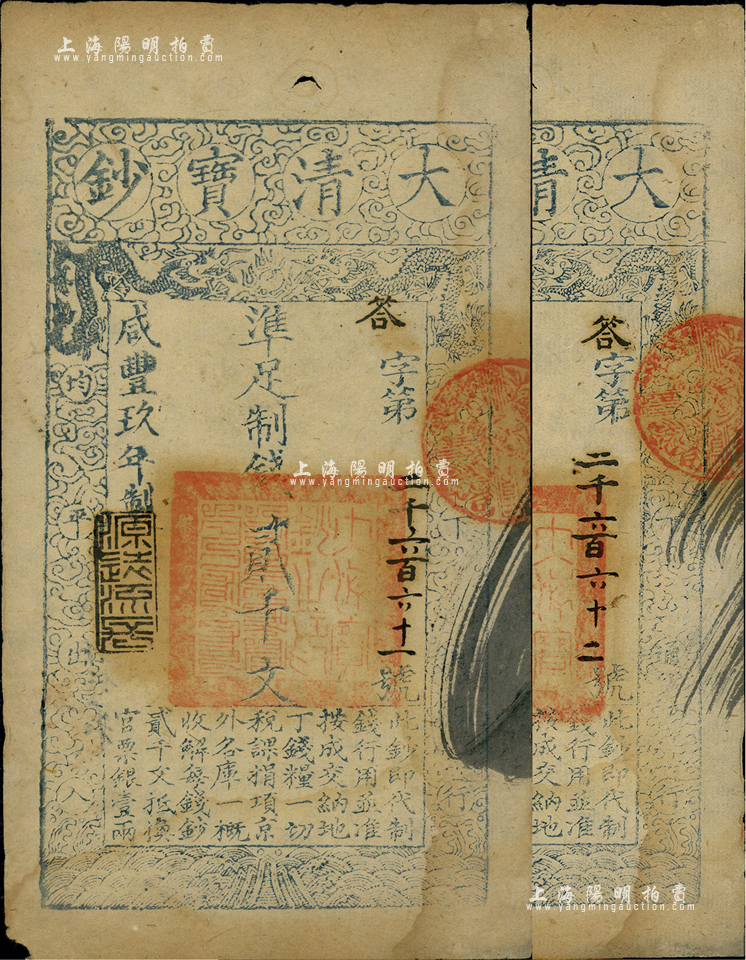 上海陽明拍賣
www.yangmingauction.com
大清寶鈔
答字第
二千六百六十一
號
準足制錢貳千文
咸豐玖年制
均
平
此鈔即代制
錢行用並准
按成交納地
丁錢糧一切
稅課捐項京
外各庫一概
收解每錢鈔
貳千文抵換
官票銀壹兩
大清
答字第
二千六百六十二
號
此鈔即代制
錢行用並准
按成交納地
上海陽明拍賣
www.yangmingauction.com
上海陽明拍賣
www.yangmingauction.com